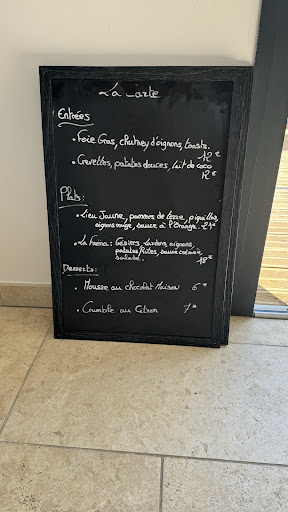 La Carte
Entrées
• Foie Gras, chutney d'oignons, toasts.
12€
• Crevettes, patates douces, lait de coco
12€
Plats:
• Lieu Jaune, pommes de terre, piquillos,
oignons rouge, sauce à l'Orange. 21€
• La : Gésiers, lardons, oignons,
patates frites, sauce crémée,
salade. 18€
Desserts:
• Mousse au chocolat Maison 6€
• Crumble au Citron 7€